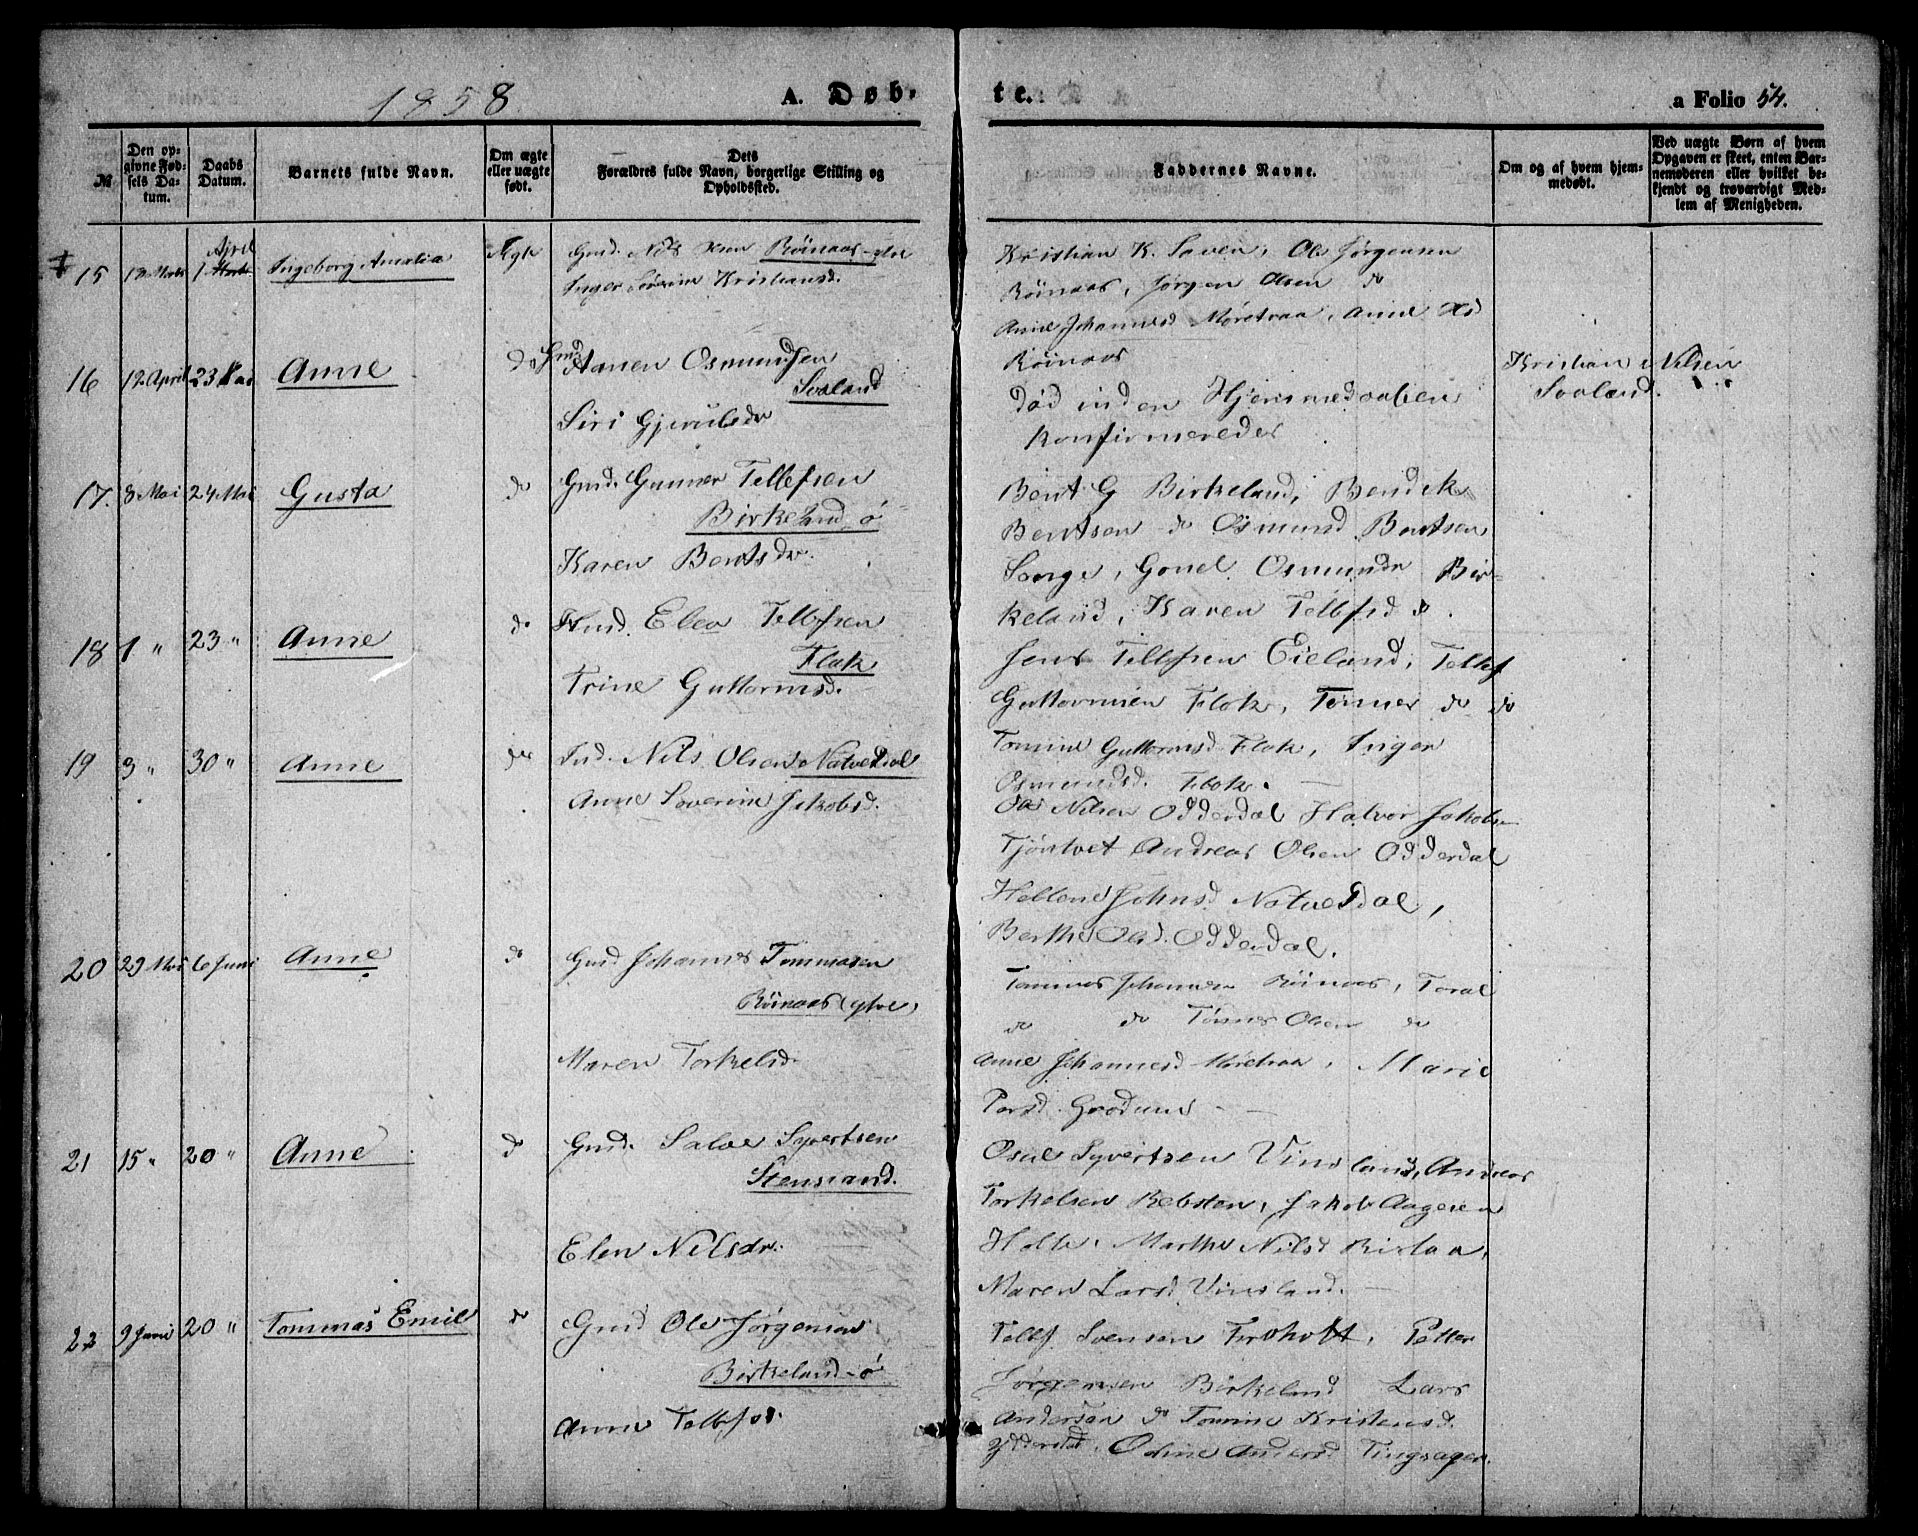 1858
A. Døb-
te.
a Folio 54.
№
Den op-
givne Fød-
sels Da-
tum.
Daabs
Datum.
Barnets fulde Navn.
Om ægte
eller uægte
født.
Dets
Forældres fulde Navn, borgerlige Stilling og
Opholdssted.
Faddernes Navne.
Om og af hvem hjem-
medøbt.
Ved uægte Børn af hvem
Opgaven er skeet, enten Bar-
nemoderen eller hvilket be-
kjendt og troværdigt Med-
lem af Menigheden.
15
April
1 Marts
Ingeborg Amalia
Ægte
Gmd. Nils Røinaas
Inger Sørine Kristiansd.
Kristian K. Loven, Ole Jørgensen
Røinaas, Jørgen Olsen do
Anne Johannesd Møretraa, Anne
Røinaas
16 12 April 23 Mai Anne do Gmd.
Osmundsen
Svaland
Siri Gjerulsdr
død inden Hjemmedaaben
konfirmeredes
Kristian Nilsen
Svaland.
17. 8 Mai 24 Mai Gusta do Gmd. Gunner Tellefsen
Birkeland ø
Karen Bentsdr.
Bent G Birkeland, Bendik
Bentsen do Osmund Bentsen
Lange, Gonel Osmundr Bir-
keland, Karen Tellefsd do.
18 1 " 23 " Anne do Elev Tellefsen
Flak
Trine Guttormsd.
Jens Tellefsen Eieland, Tellef
Guttormsen Flak, Tønnes do do
Tomine Guttormsd Flak, Inger
Osmundsd. Flak.
19 3 " 30 " Anne do Ind. Nils Olsen Natvedal
Anne Severine Jakobsd.
Ole Nilsen Odderdal Halvor Jakobsen
Tjøntvet Andreas Olsen Odderdal
Hellene Johnsd. Natvedal,
Berthe Olsd. Odderdal.
20 29 Mai 6 Juni Anne do Gmd. Johannes Tommasen
Røinaas
Maren Torkelsd.
Tommas Johannesen Røinaas, Toral
do do Tønnes Olsen do
Anne Johannesd Møretraa, Marie
21 15 " 20 " Anne do Gmd. Salve Syvertsen
Stensland.
Elen Nilsdr.
Osul Syvertsen Vinsland, Andreas
Torkelsen Rebsten, Jakob Aagesen
Holte, Marthe Nilsd
Maren Larsd Vinsland.
22 9 Juni 20 " Tommas Emil do Gmd Ole Jørgensen
Birkeland ø
Anne Tellefsd.
Tellef Svensen Furholt, Petter
Jørgensen Birkeland Lars
Andersen do Tomine Kristensd.
Odderdal, Odine Andersd Tingsager.